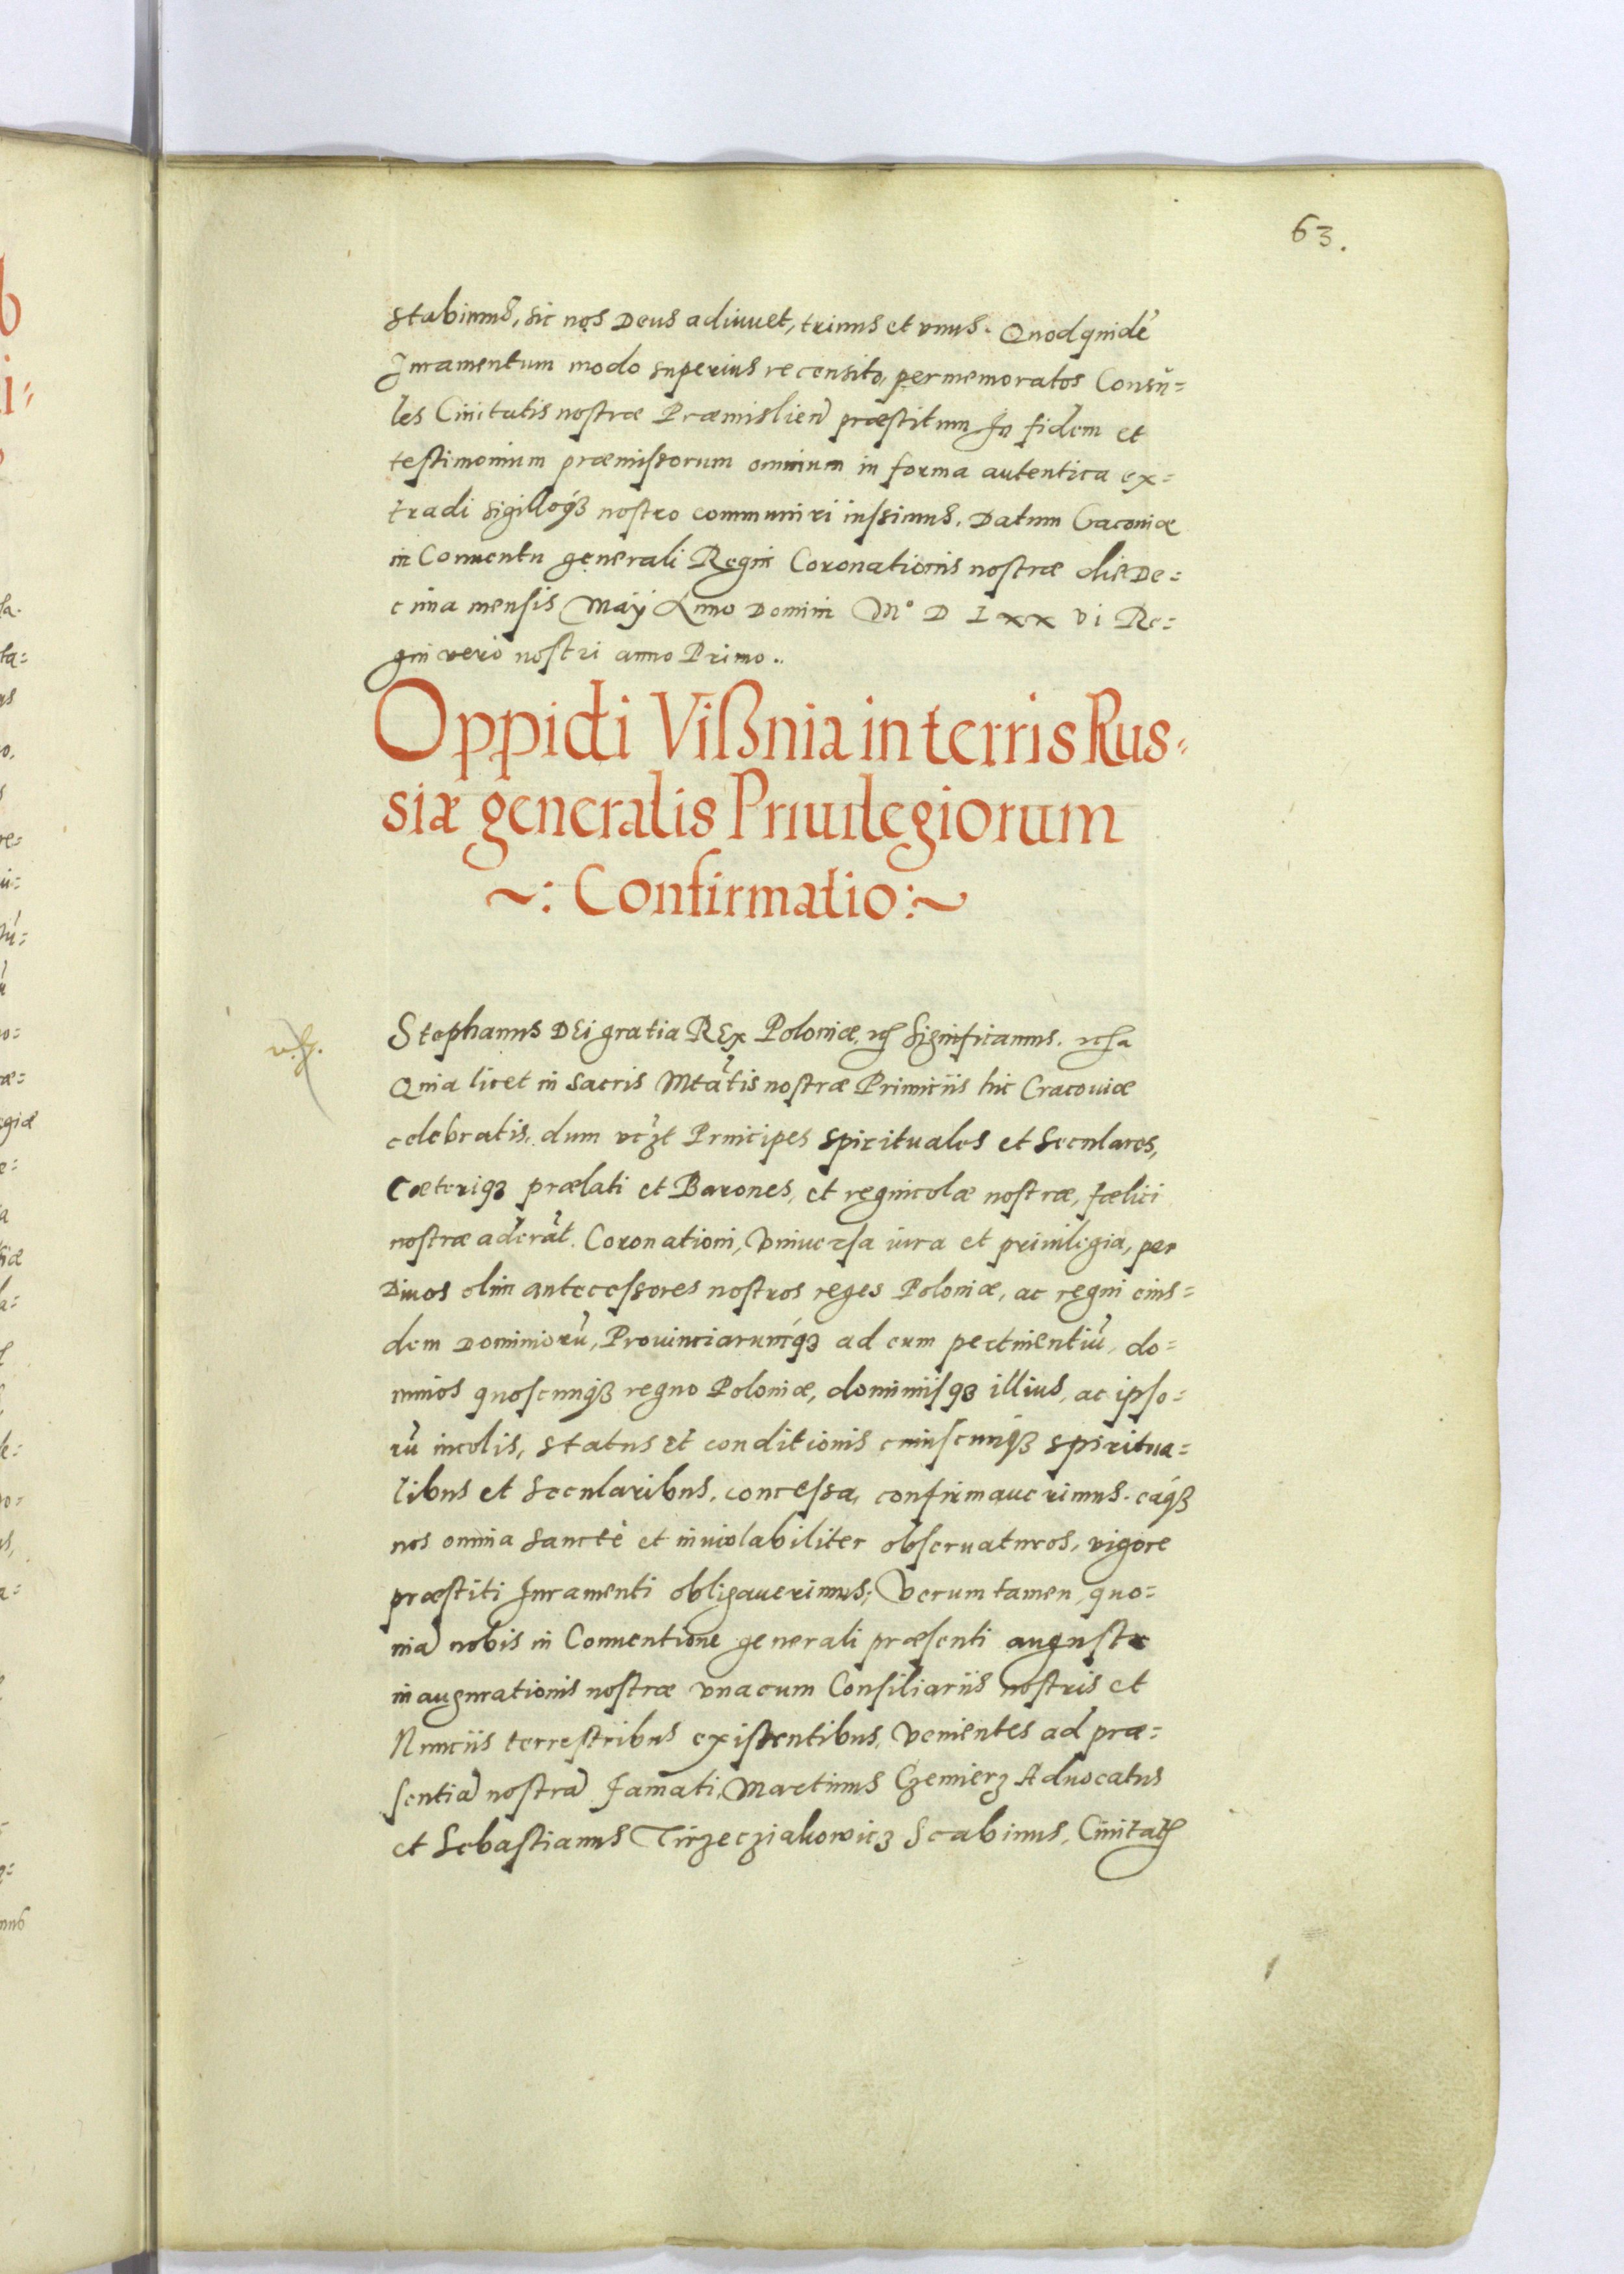 63.
stabimus, sic nos Deus adiuuet, trinus et vnus. Quodquidē
Juramentum modo superius recensito, per memoratos Consu=
les Ciuitatis nostræ Præmislien præstitum In fidem et
testimonium præmissorum omnium in forma autentica ex=
tradi sigilloqȝ nostro communiri iussimus. Datum Cracouiæ
in Conuentu generali Regni Coronationis nostræ die De=
cima mensis Maÿ Anno Domini M° D Lxx vi Re=
gni vero nostri anno Primo..
Oppidi Vißnia in terris Rus=
siæ generalis Priuilegiorum
~: Confirmatio :~
Stephanus DEi gratia REx Poloniæ, Significamus.
Quia licet in sacris Mtātis nostræ Primiciis hic Cracouiæ
celebratis, dum vczt Principes spirituales et Seculares,
Cæteriqȝ prælati et Barones, et regnicolæ nostræ, fœlici
nostræ aderāt Coronationi, Vniuersa iura et priuilegia, per
Diuos olim antecessores nostros reges Poloniæ, ac regni eius=
dem Dominiorū, Prouinciarumqȝ ad eum pertinentiū, do=
minos quoscunqȝ regno Poloniæ, dominiisqȝ illius, ac ipso=
rū incolis, status et conditionis cuiuscunqȝ spiritua=
libus et Secularibus, concessa, confirmauerimus. eaqȝ
nos omnia sanctè et inuiolabiliter obseruaturos, vigore
præstiti Juramenti obligauerimus, Verum tamen, quo=
niā nobis in Conuentione generali præsenti augustæ
inaugurationis nostræ vnacum Consiliariis nostris et
Nunciis terrestribus existentibus, Venientes ad præ=
sentiā nostrā famati, Martinus Czemierz Aduocatus
et Sebastianus Tirzecziakowicz Scabinus, Ciuitatis